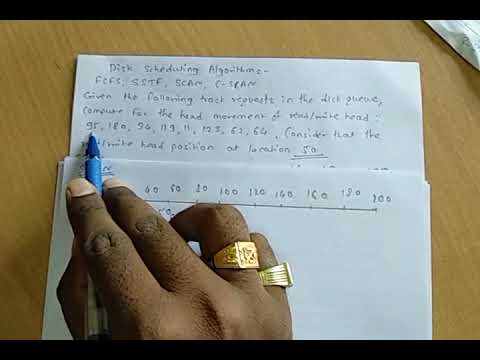 Disk Scheduling Algorithms-
FCFS, SSTF, SCAN, C-SCAN
Given the following track requests in the disk queue,
compute for the head movement of read/write head :
95, 180, 34, 119, 11, 123, 62, 64, Consider that the
read/write head position at location 50
40 60 80 100 120 140 160 180 200